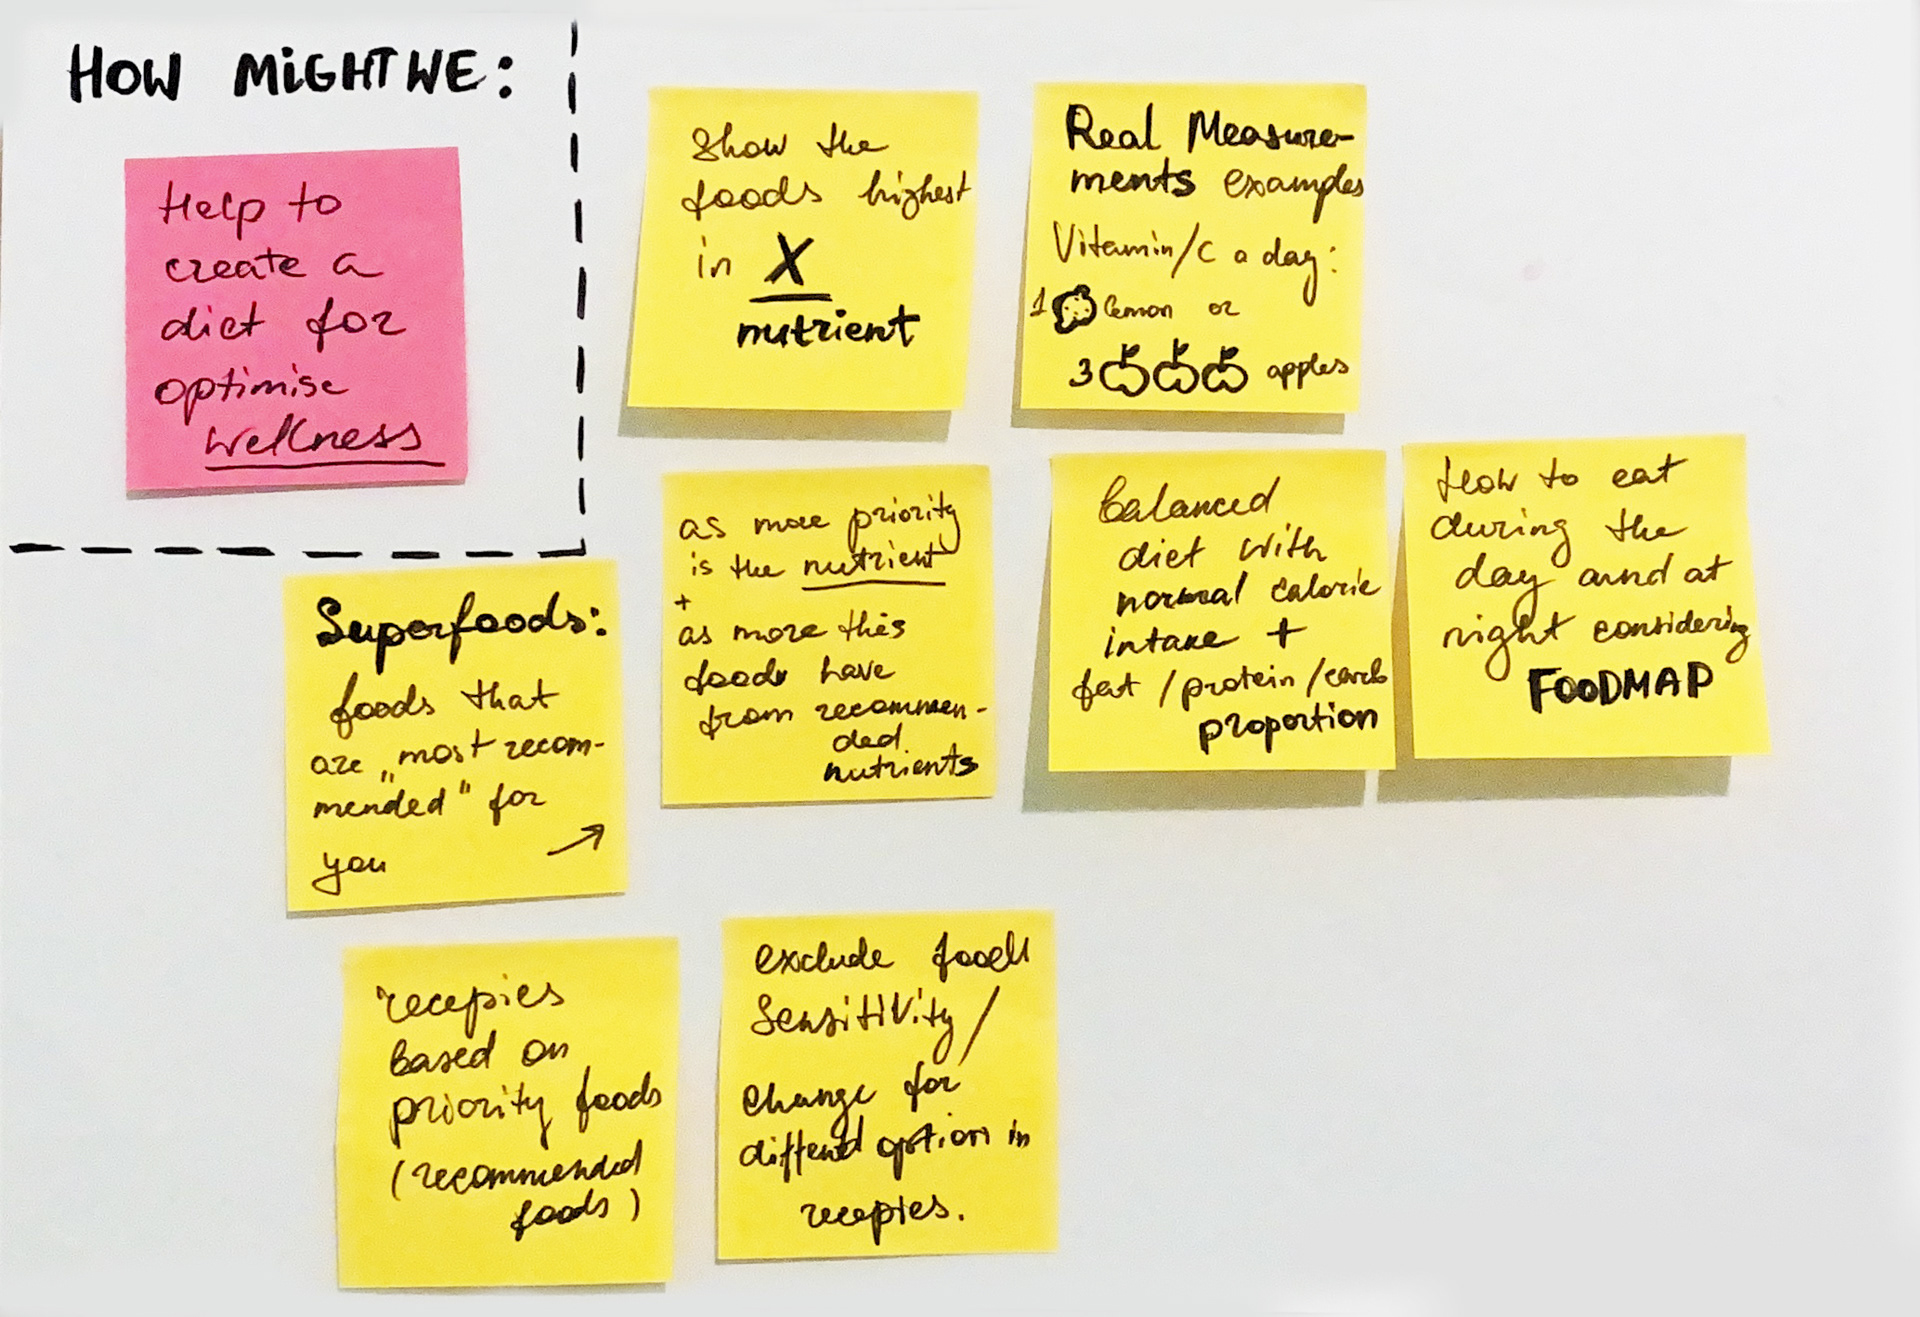 HOW MIGHT WE:
Help to
create a
diet for
optimise
wellness
Show the
foods highest
in X
nutrient
Real Measure-
ments examples
Vitamin/C a day:
1 lemon or
3 apples
Superfoods:
foods that
are „most recom-
mended" for
you
as more priority
is the nutrient
+
as more this
foods have
from recommen-
ded
nutrients
Balanced
diet with
normal calorie
intake +
fat/protein/carb
proportion
How to eat
during the
day and at
night considering
FOODMAP
recepies
based on
priority foods
(recommended
foods)
exclude foods
sensitivity/
change for
different option in
recepies.